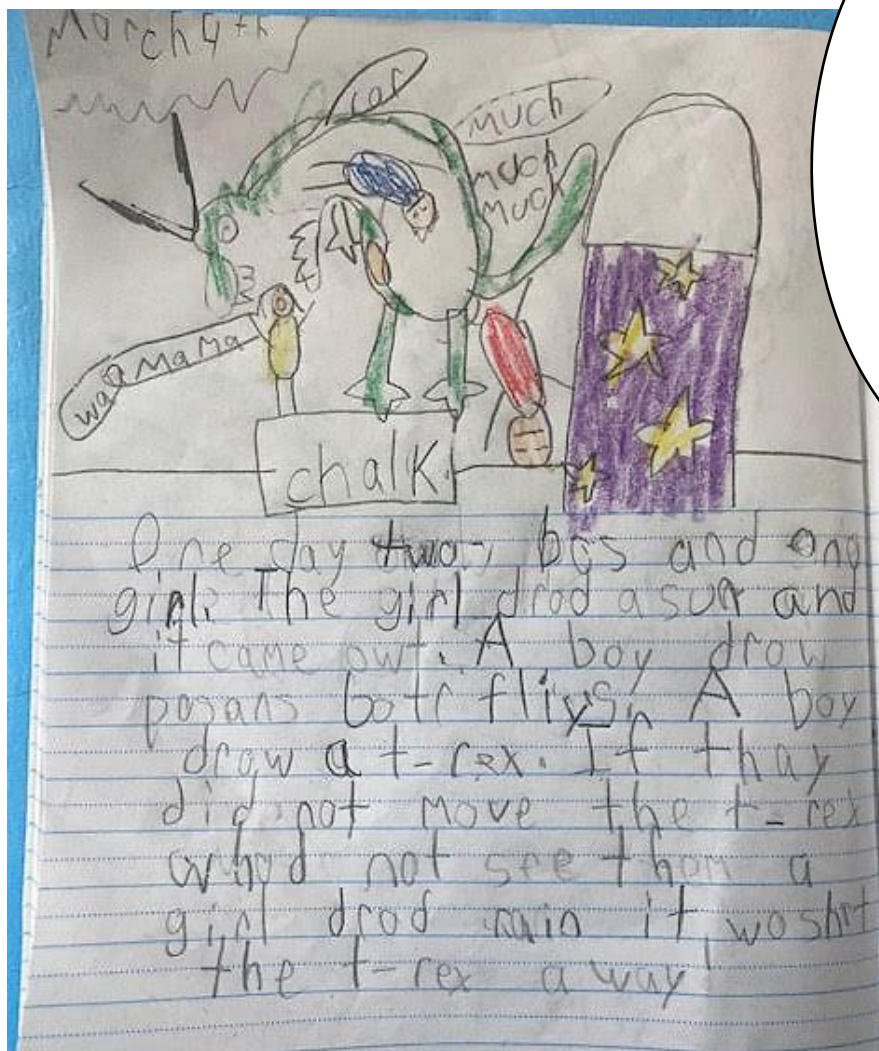 March 4th
rar
much
much
much
waa mama
chalk
One day two bos and one
girl. The girl drod a sun and
it came owt. A boy drow
posans botr fliys. A boy
draw a t-rex. If thay
did not move the t-rex
whod not see them a
girl drod rain it wosht
the t-rex a way!